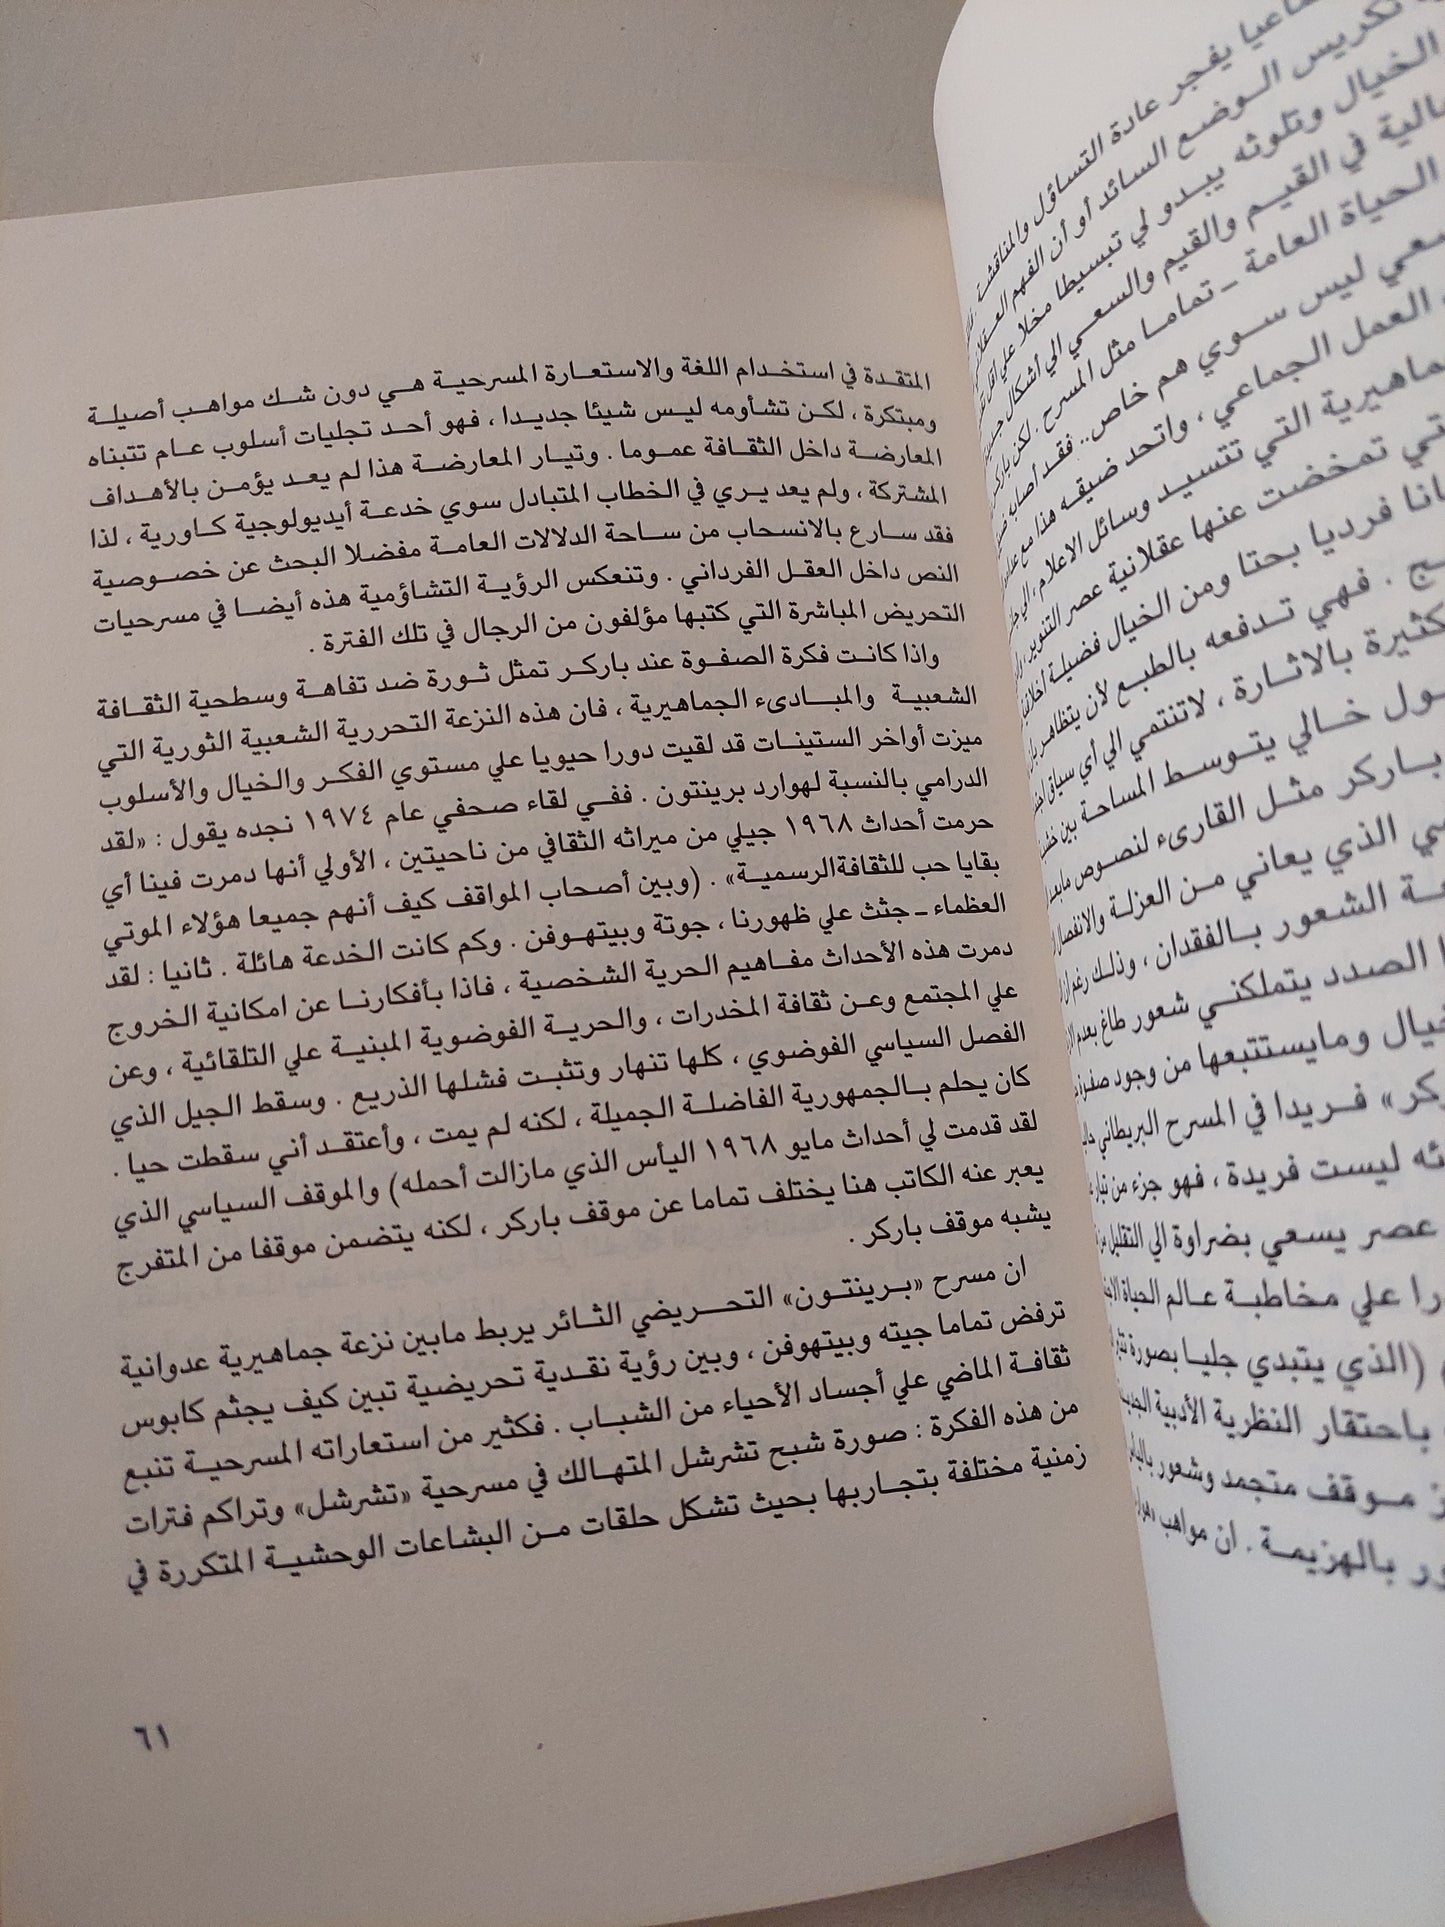 يفجر عادة التساؤل والمناقشة .
تكريس الوضع السائد أو أن الفهم
الخيال وتلوثه يبدو لي تبسيطا مخلا علي أقل
في القيم والقيم والسعي الي أشكال
الحياة العامة ـ تماما مثل المسرح . لكن
ليس سوي هم خاص .. فقد أصابه
العمل الجماعي ، واتحد ضيقه هذا مع
التي تتسيد وسائل الاعلام ، الي
تمخضت عنها عقلانية عصر التنوير ،
فرديا بحتا ومن الخيال فضيلة
. فهي تدفعه بالطبع لأن يتظاهر
بالاثارة ، لاتنتمي الي أي سياق
خالي يتوسط المساحة بين
باركر مثل القارىء لنصوص
الذي يعاني من العزلة والانفصال
الشعور بالفقدان ، وذلك رغم
الصدد يتملكني شعور طاغ بعدم
ومايستتبعها من وجود صفوة
فريدا في المسرح البريطاني
ليست فريدة ، فهو جزء من تيار
عصر يسعي بضراوة الي التقليل
علي مخاطبة عالم الحياة
(الذي يتبدي جليا بصورة
باحتقار النظرية الأدبية
موقف متجمد وشعور
بالهزيمة . ان مواهب
المتقدة في استخدام اللغة والاستعارة المسرحية هي دون شك مواهب أصيلة
ومبتكرة ، لكن تشأومه ليس شيئا جديدا ، فهو أحد تجليات أسلوب عام تتبناه
المعارضة داخل الثقافة عموما . وتيار المعارضة هذا لم يعد يؤمن بالأهداف
المشتركة ، ولم يعد يري في الخطاب المتبادل سوي خدعة أيديولوجية كاورية ، لذا
فقد سارع بالانسحاب من ساحة الدلالات العامة مفضلا البحث عن خصوصية
النص داخل العقل الفرداني . وتنعكس الرؤية التشاؤمية هذه أيضا في مسرحيات
التحريض المباشرة التي كتبها مؤلفون من الرجال في تلك الفترة .
واذا كانت فكرة الصفوة عند باركر تمثل ثورة ضد تفاهة وسطحية الثقافة
الشعبية والمبادىء الجماهيرية ، فان هذه النزعة التحررية الشعبية الثورية التي
ميزت أواخر الستينات قد لقيت دورا حيويا علي مستوي الفكر والخيال والأسلوب
الدرامي بالنسبة لهوارد برينتون . ففي لقاء صحفي عام ١٩٧٤ نجده يقول : «لقد
حرمت أحداث ١٩٦٨ جيلي من ميراثه الثقافي من ناحيتين ، الأولي أنها دمرت فينا أي
بقايا حب للثقافةالرسمية» . (وبين أصحاب المواقف كيف أنهم جميعا هؤلاء الموتي
العظماء ـ جثث علي ظهورنا ، جوتة وبيتهوفن . وكم كانت الخدعة هائلة . ثانيا : لقد
دمرت هذه الأحداث مفاهيم الحرية الشخصية ، فاذا بأفكارنا عن امكانية الخروج
علي المجتمع وعن ثقافة المخدرات ، والحرية الفوضوية المبنية علي التلقائية ، وعن
الفصل السياسي الفوضوي ، كلها تنهار وتثبت فشلها الذريع . وسقط الجيل الذي
كان يحلم بالجمهورية الفاضلة الجميلة ، لكنه لم يمت ، وأعتقد أني سقطت حيا .
لقد قدمت لي أحداث مايو ١٩٦٨ اليأس الذي مازالت أحمله) والموقف السياسي الذي
يعبر عنه الكاتب هنا يختلف تماما عن موقف باركر ، لكنه يتضمن موقفا من المتفرج
يشبه موقف باركر .
ان مسرح «برينتون» التحريضي الثائر يربط مابين نزعة جماهيرية عدوانية
ترفض تماما جيته وبيتهوفن ، وبين رؤية نقدية تحريضية تبين كيف يجثم كابوس
ثقافة الماضي علي أجساد الأحياء من الشباب . فكثير من استعاراته المسرحية تنبع
من هذه الفكرة : صورة شبح تشرشل المتهالك في مسرحية «تشرشل» وتراكم فترات
زمنية مختلفة بتجاربها بحيث تشكل حلقات من البشاعات الوحشية المتكررة في
٦١